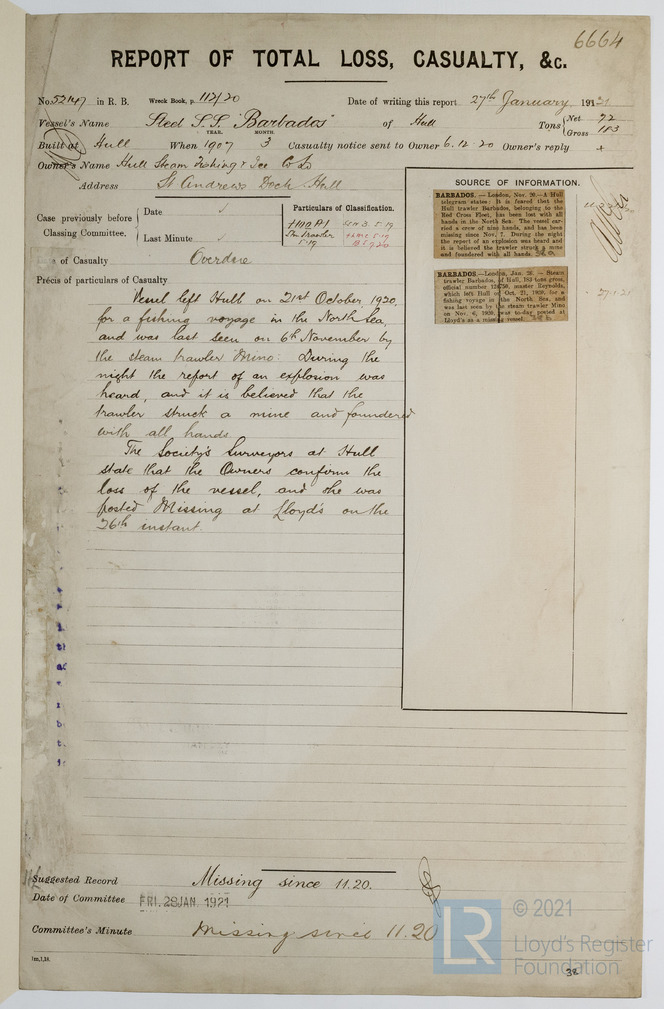 6664
REPORT OF TOTAL LOSS, CASUALTY, &c.
No. 52147 in R. B. Wreck Book, p. 112/20 Date of writing this report 27th January 1921
Vessel's Name Steel S.S. "Barbados" of Hull Tons { Net 72 Gross 183
YEAR. MONTH.
Built at Hull When 1907 3 Casualty notice sent to Owner 6.12.20 Owner's reply +
Owner's Name Hull Steam Fishing & Ice Co Ld
Address St Andrews Dock Hull
Case previously before Classing Committee.
Date
Last Minute
Particulars of Classification.
Stm Trawler
5.19
of Casualty Overdue
Précis of particulars of Casualty
Vessel left Hull on 21st October, 1920,
for a fishing voyage in the North Sea,
and was last seen on 6th November by
the steam trawler Mino: During the
night the report of an explosion was
heard, and it is believed that the
trawler struck a mine and foundered
with all hands.
The Society's Surveyors at Hull
state that the Owners confirm the
loss of the vessel, and she was
posted Missing at Lloyd's on the
26th instant.
SOURCE OF INFORMATION.
BARBADOS.—London, Nov. 29.—A Hull
telegram states: It is feared that the
Hull trawler Barbados, belonging to the
Red Cross Fleet, has been lost with all
hands in the North Sea. The vessel car-
ried a crew of nine hands, and has been
missing since Nov. 7. During the night
the report of an explosion was heard and
it is believed the trawler struck a mine
and foundered with all hands.
BARBADOS.—London, Jan. 26.—Steam
trawler Barbados, of Hull, 183 tons gross,
official number master Reynolds,
which left Hull on Oct. 21, 1920, for a
fishing voyage in the North Sea, and
was last seen by the steam trawler Mino
on Nov. 6, 1920, was to-day posted at
Lloyd's as a missing vessel.
27.1.21
Suggested Record Missing since 11.20.
Date of Committee FRI. 28 JAN. 1921
Committee's Minute Missing since 11.20
© 2021
LR Lloyd's Register
Foundation
38